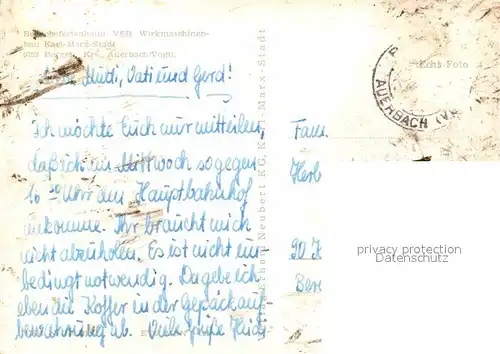 Betriebsferienheim VEB Wirkmaschinen-
bau Karl-Marx-Stadt
Bergen, Krs. Auerbach/Vogtl.
Echt-Foto
AUERBACH (V
Liebe Mudi, Vati und Gerd!
Ich möchte Euch nur mitteilen,
daß ich am Mittwoch so gegen
10 Uhr am Hauptbahnhof
ankomme. Ihr braucht mich
nicht abzuholen, Es ist nicht un-
bedingt notwendig. Da gebe ich
eben die Koffer in der Gepäckauf-
bewahrung ab. Viele Grüße Heidi
Neubert KG, K Marx-Stadt
Fam
Herb
90 K
Bere
privacy protection
Datenschutz